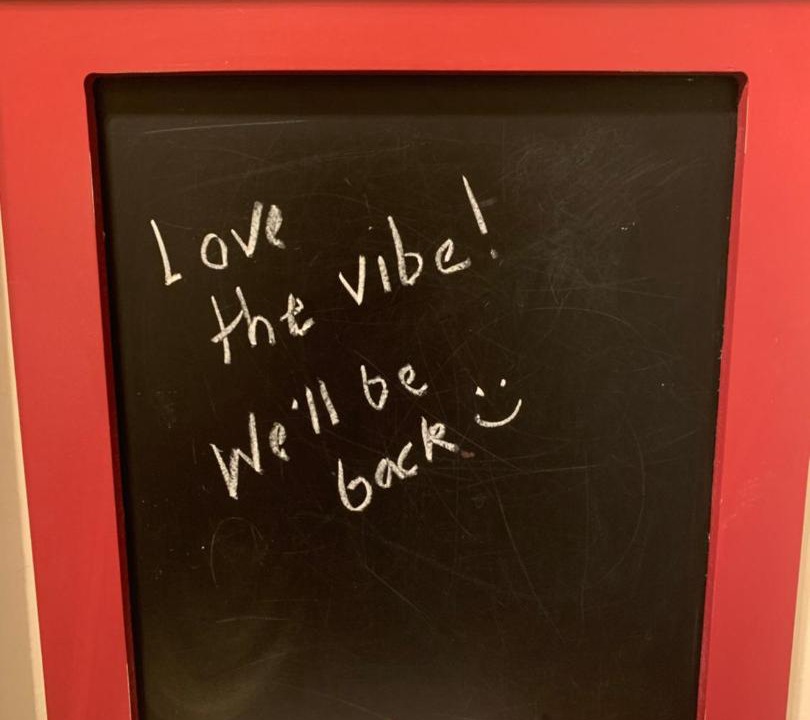 Love
the vibe!
We'll be
back :)